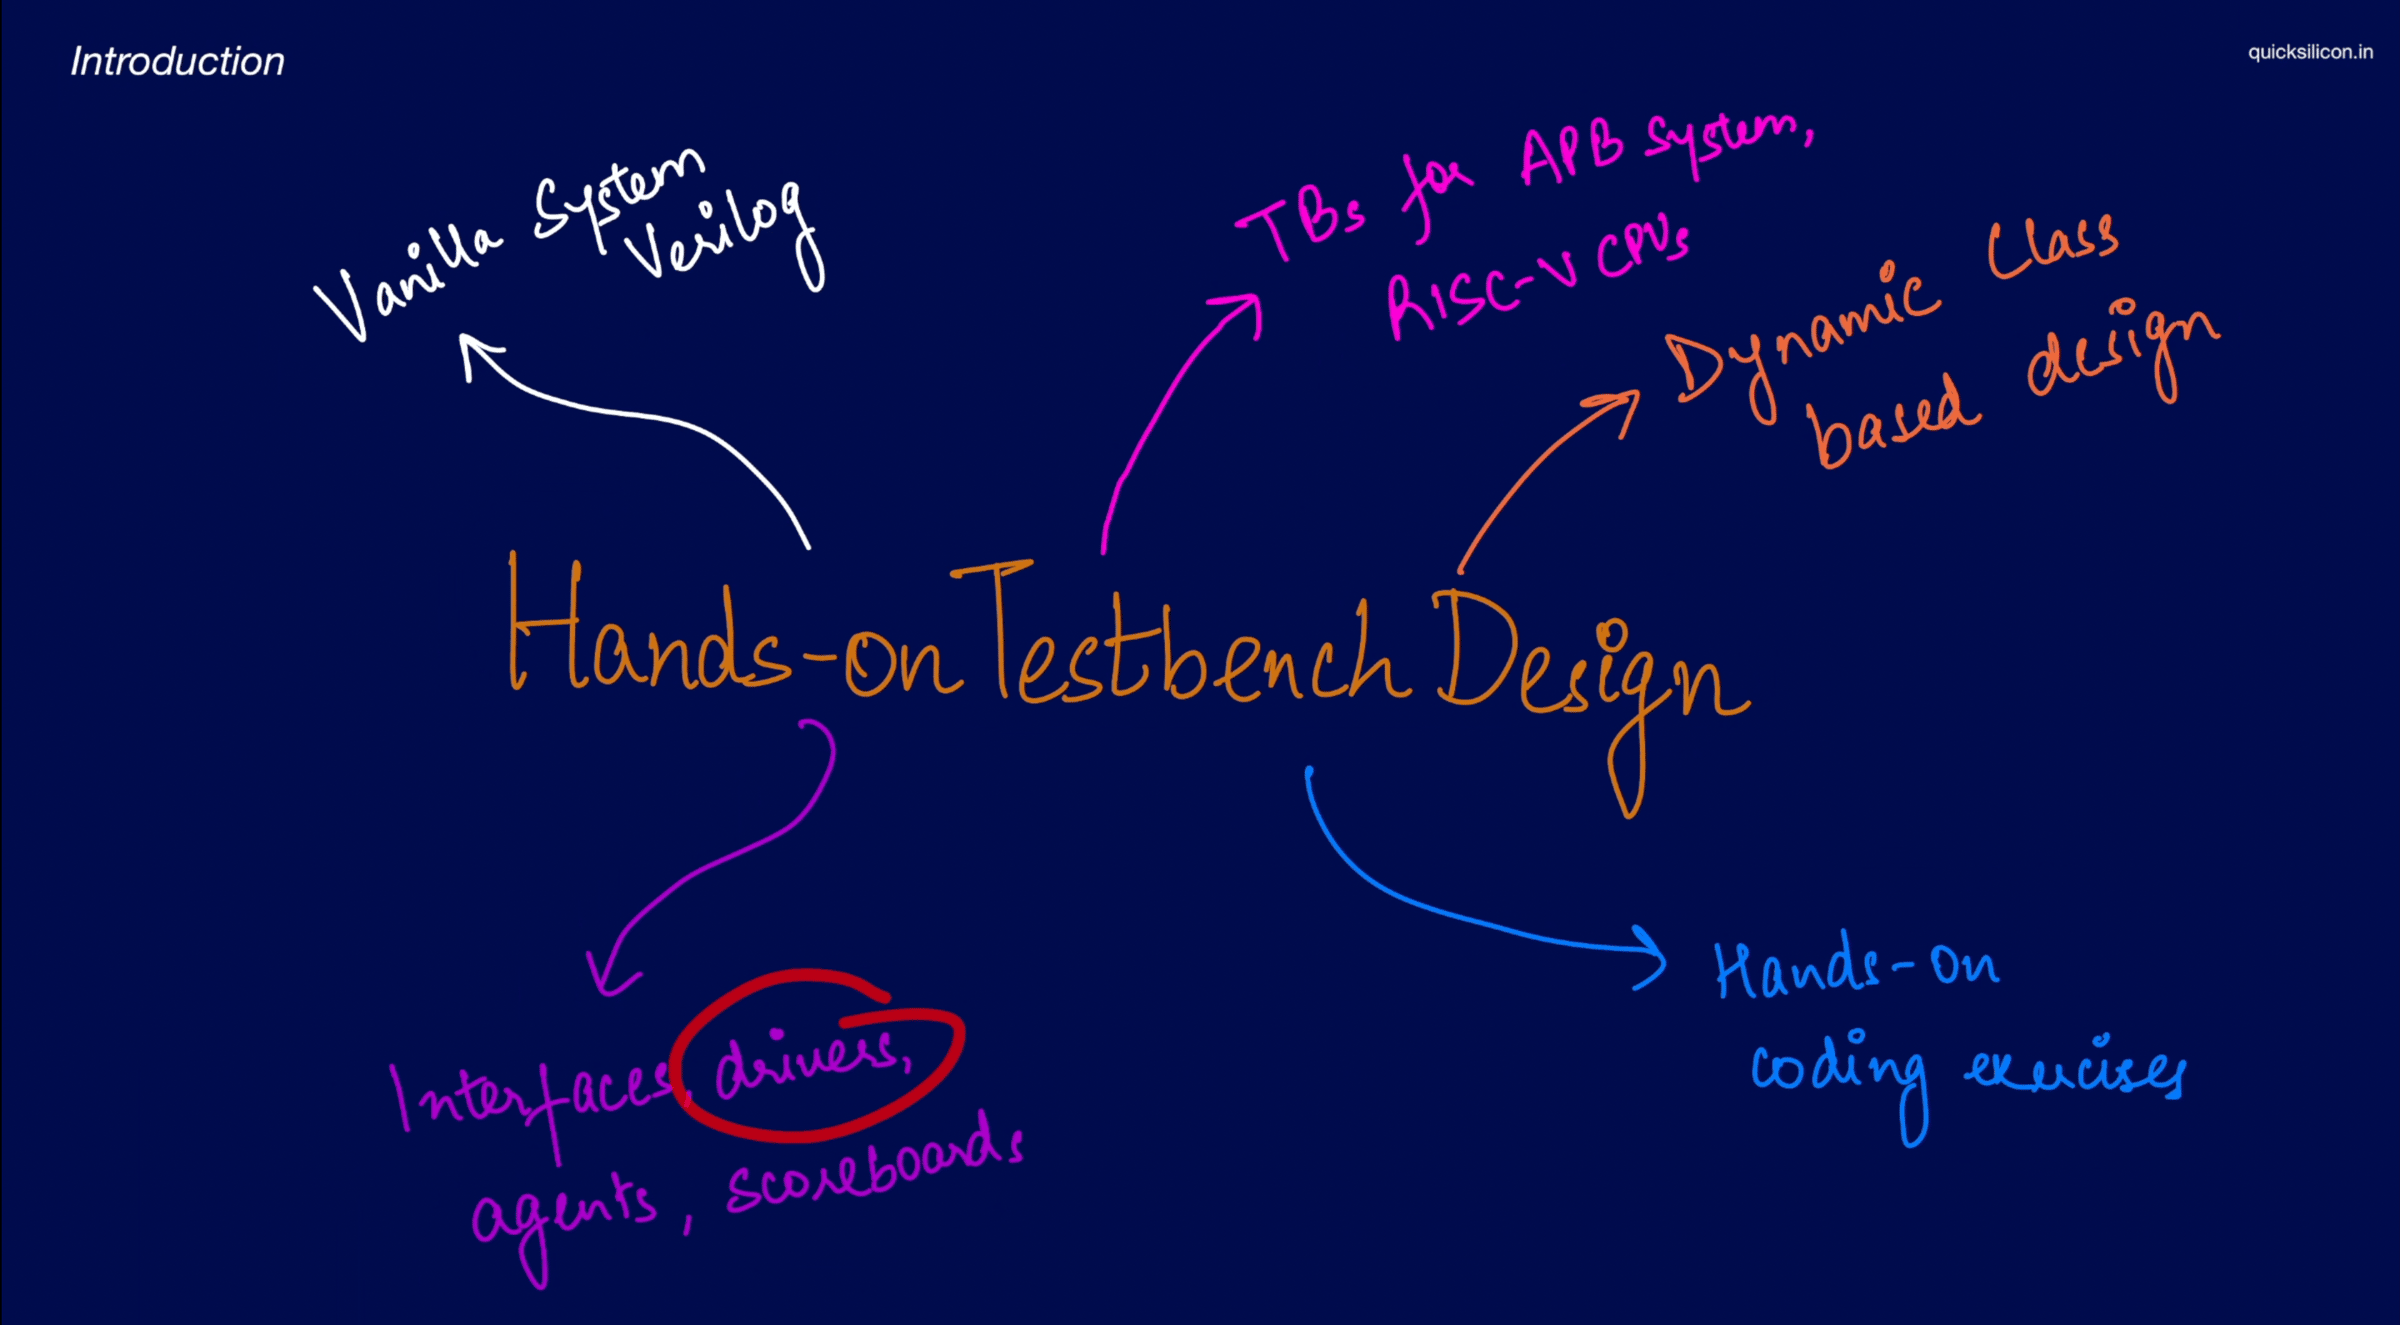 Introduction
quicksilicon.in
Vanilla System
Verilog
TBs for APB System,
RISC-V CPUs
Dynamic Class
based design
Hands-on Testbench Design
Interfaces, drivers,
agents, scoreboards
Hands-on
coding exercises